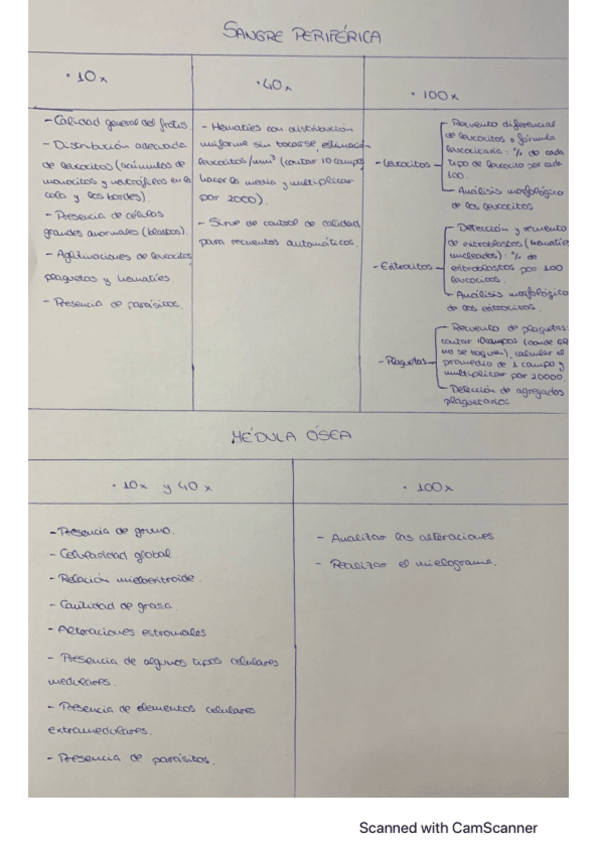 SANGRE PERIFÉRICA
· 10x
· 40x
· 100x
- Calidad general del frotis.
- Distribución adecuada
de leucocitos (acúmulos de
monocitos y neutrófilos en la
cola y los bordes).
- Presencia de células
grandes anormales (blastos).
- Aglutinaciones de leucocitos,
plaquetas y hematíes
- Presencia de parásitos.
- Hematíes con distribución
uniforme sin tocarse, estimación
leucocitos/mm³ (contar 10 campos,
hacer la media y multiplicar
por 2000).
- Sirve de control de calidad
para recuentos automáticos.
- Leucocitos
- Recuento diferencial
de leucocitos o fórmula
leucocitaria: % de cada
tipo de leucocito por cada
100.
- Análisis morfológico
de los leucocitos
- Eritrocitos
- Detección y recuento
de eritroblastos (hematíes
nucleados): % de
eritroblastos por 100
leucocitos.
- Análisis morfológico
de los eritrocitos.
- Plaquetas
- Recuento de plaquetas:
contar 10 campos (donde GR
no se toquen), calcular el
promedio de 1 campo y
multiplicar por 20000.
- Detección de agregados
plaquetarios
MÉDULA ÓSEA
· 10x y 40x
· 100x
- Presencia de grumo.
- Celularidad global
- Relación mieloeritroide.
- Cantidad de grasa.
- Alteraciones estromales
- Presencia de algunos tipos celulares
medulares.
- Presencia de elementos celulares
extramedulares.
- Presencia de parásitos.
- Analizar las alteraciones
- Realizar el mielograma.
Scanned with CamScanner